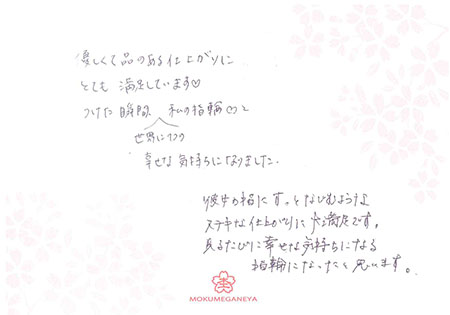 優しくて品のある仕上がりに
とても 満足しています♡
つけた瞬間、私の指輪♡と
世界に1つの
幸せな気持ちになりました。
彼女の指にすっとなじむような
ステキな仕上がりに大満足です。
見るたびに幸せな気持ちになる
指輪になったと思います。
MOKUMEGANEYA